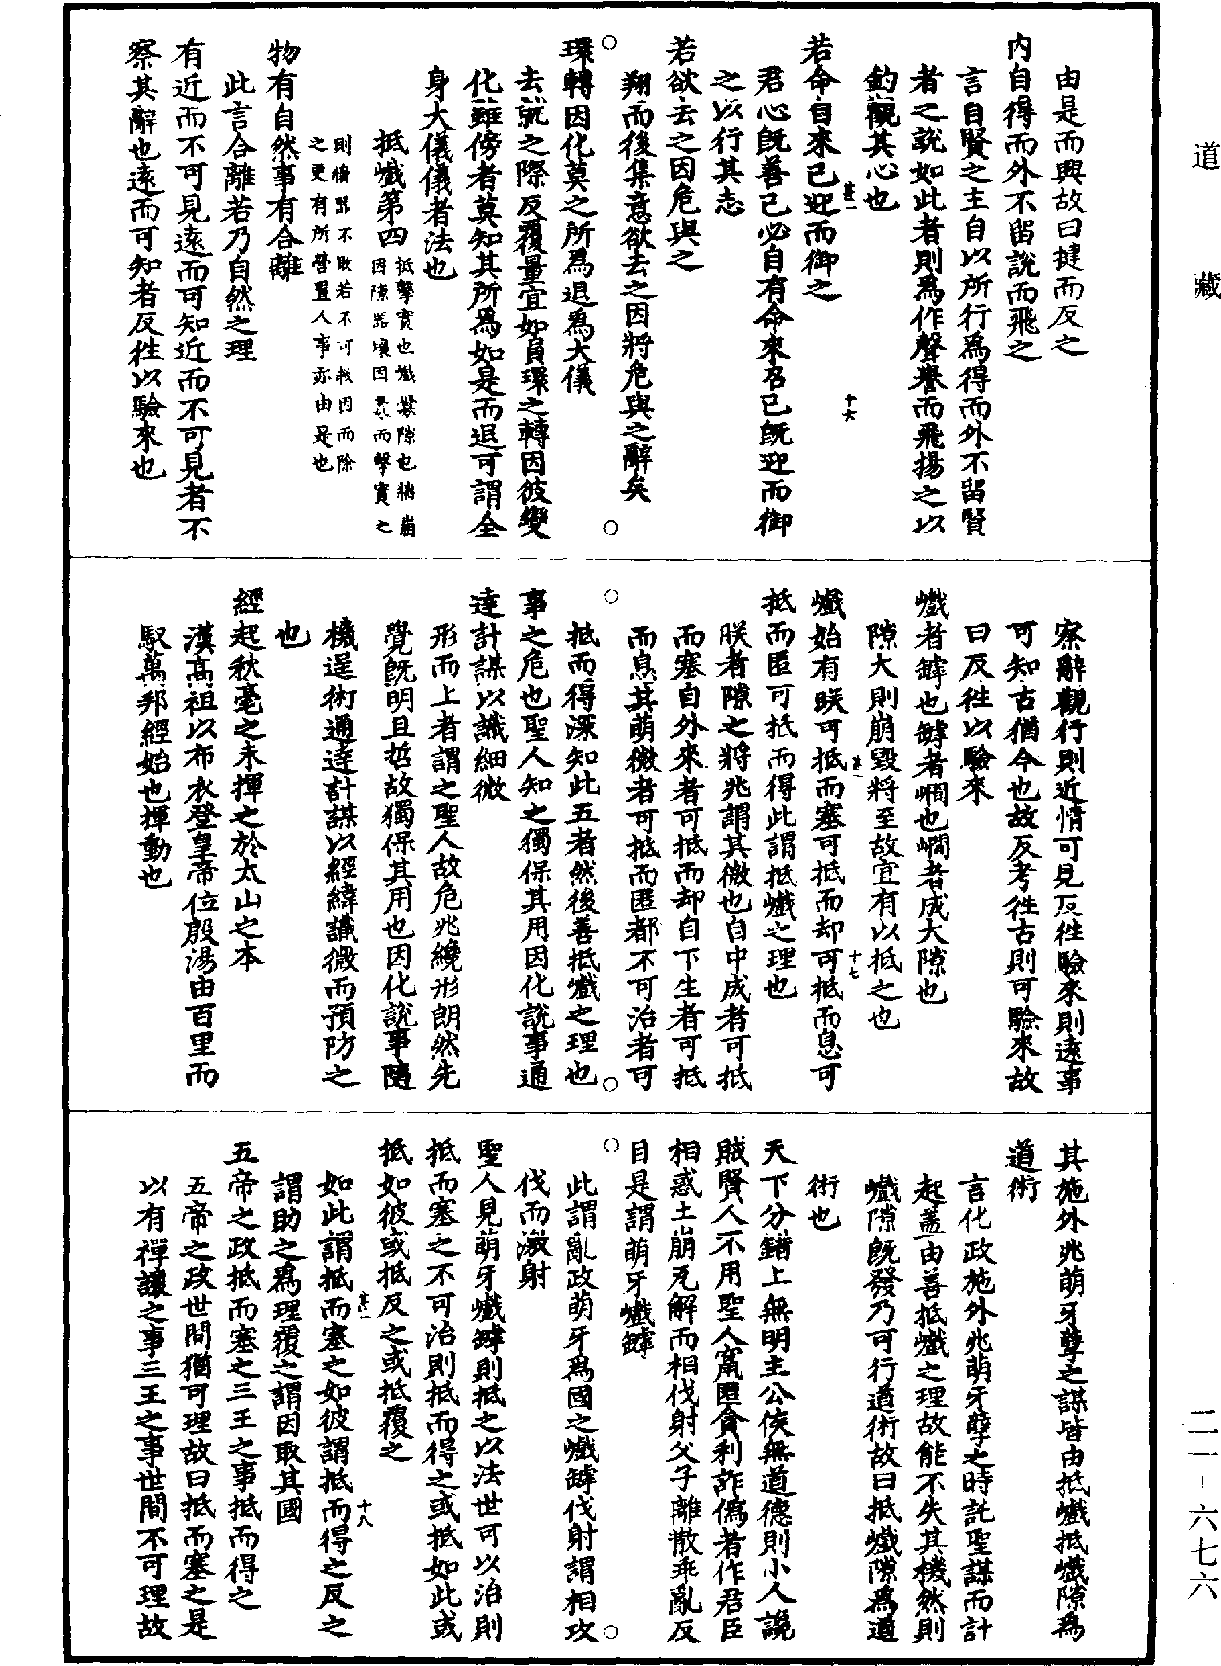 道藏
由是而興故曰揵而反之
内自得而外不留說而飛之
言自賢之主自以所行爲得而外不留賢
者之說如此者則爲作聲譽而飛揚之以
釣觀其心也
若命自來己迎而御之
君心旣善己必自有命來召己旣迎而御
之以行其志
若欲去之因危與之
翔而後集意欲去之因將危與之辭矣
環轉因化莫之所爲退爲大儀
去就之際反覆量宜如負環之轉因彼變
化雖傍者莫知其所爲如是而退可謂全
身大儀儀者法也
抵巇第四
抵擊實也巇釁隙也牆崩
因隙器壞因釁而擊實之
則牆器不敗若不可救因而除
之更有所營置人事亦由是也
物有自然事有合離
此言合離若乃自然之理
有近而不可見遠而可知近而不可見者不
察其辭也遠而可知者反徃以驗來也
察辭觀行則近情可見反徃驗來則遠事
可知古猶今也故反考徃古則可驗來故
曰反徃以驗來
巇者罅也罅者㵎也㵎者成大隙也
隙大則崩毀將至故宜有以抵之也
巇始有朕可抵而塞可抵而却可抵而息可
抵而匿可抵而得此謂抵巇之理也
朕者隙之將兆謂其微也自中成者可抵
而塞自外來者可抵而却自下生者可抵
而息其萌微者可抵而匿都不可治者可
抵而得深知此五者然後善抵巇之理也
事之危也聖人知之獨保其用因化說事通
達計謀以識細微
形而上者謂之聖人故危兆纔形朗然先
覺旣明且哲故獨保其用也因化說事隨
機逞術通達計謀以經緯識微而預防之
也
經起秋毫之末揮之於太山之本
漢高祖以布衣登皇帝位殷湯由百里而
馭萬邦經始也揮動也
其施外兆萌牙孽之謀皆由抵巇抵巇隙爲
道術
言化政施外兆萌牙孽之時託聖謀而計
起蓋由善抵巇之理故能不失其機然則
巇隙旣發乃可行道術故曰抵巇隙爲道
術也
天下分錯上無明主公侯無道德則小人讒
賊賢人不用聖人竄匿貪利詐僞者作君臣
相惑土崩瓦解而相伐射父子離散乖亂反
目是謂萌牙巇罅
此謂亂政萌牙爲國之巇罅伐射謂相攻
伐而激射
聖人見萌牙巇罅則抵之以法世可以治則
抵而塞之不可治則抵而得之或抵如此或
抵如彼或抵反之或抵覆之
如此謂抵而塞之如彼謂抵而得之反之
謂助之爲理覆之謂因取其國
五帝之政抵而塞之三王之事抵而得之
五帝之政世間猶可理故曰抵而塞之是
以有禪讓之事三王之事世間不可理故
二一-六七六